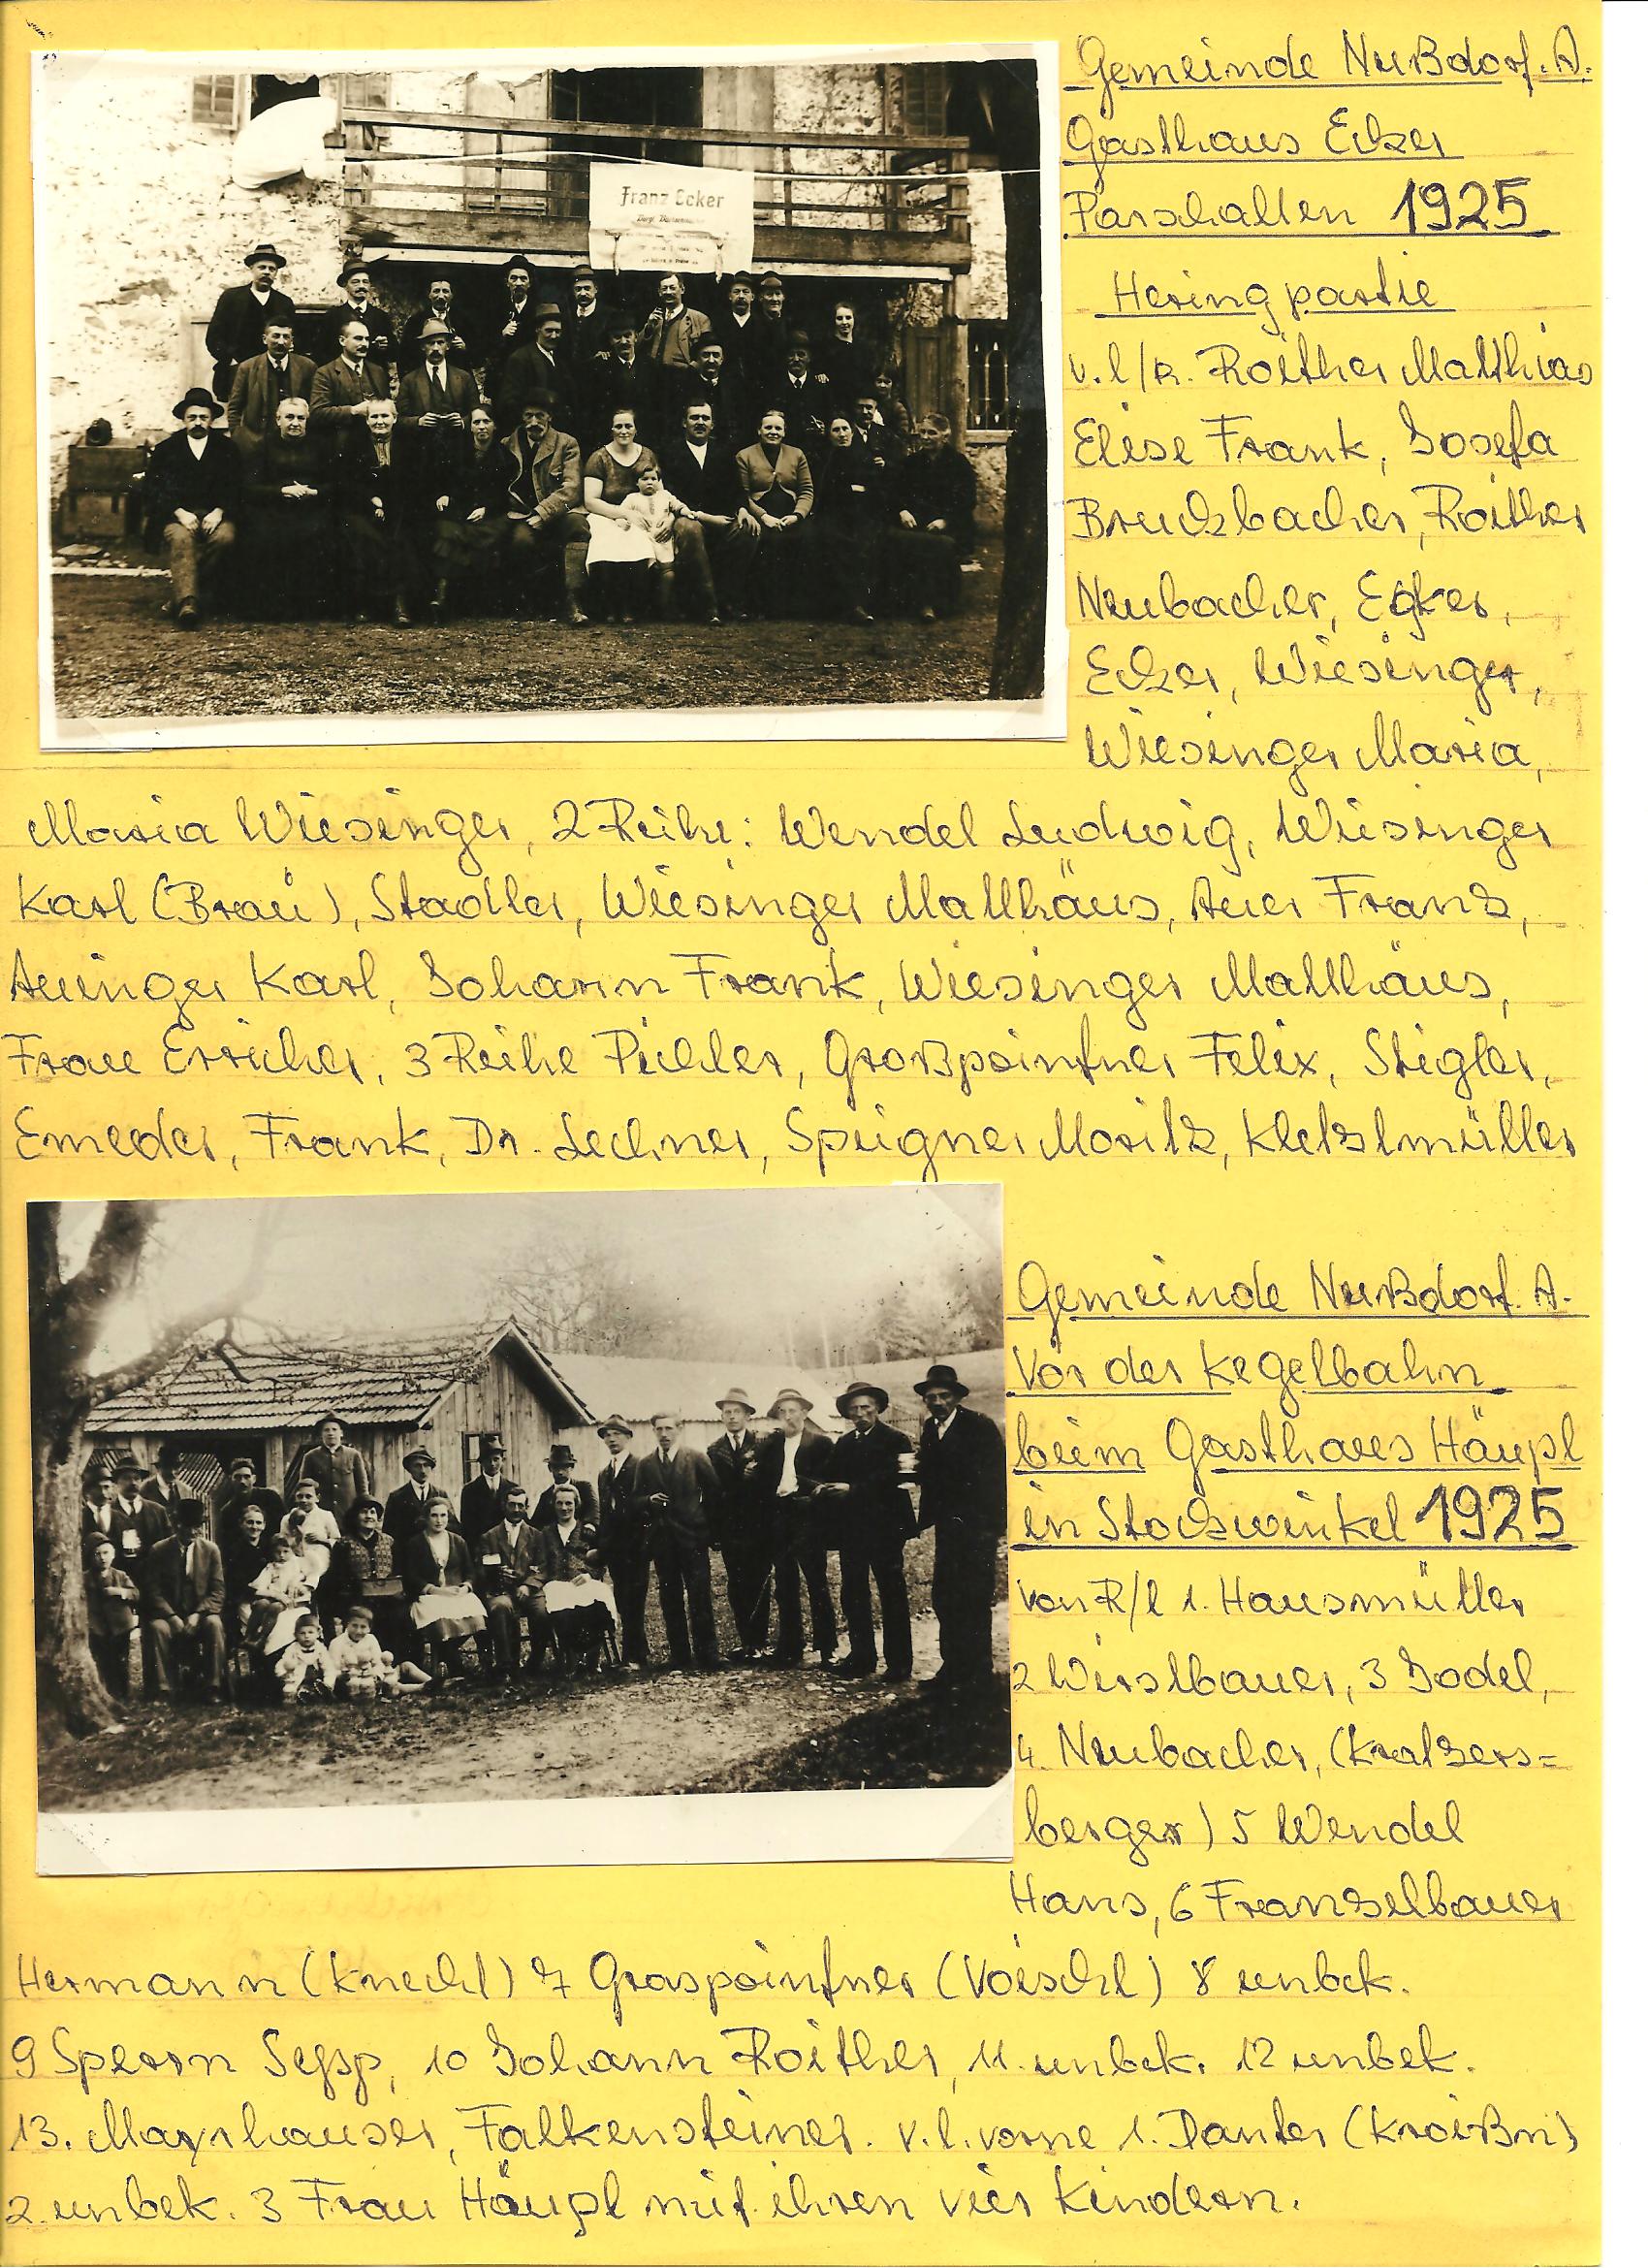 Franz Ecker
Gemeinde Nußdorf. A.
Gasthaus Ecker
Parschallen 1925
Heringpartie
v.l/R. Roither Matthias
Elise Frank, Josefa
Bruckbacher, Roither
Neubacher, Egker,
Ecker, Wiesinger,
Wiesinger Maria,
Maria Wiesinger, 2 Reihe: Wendel Ludwig, Wiesinger
Karl (Bräu), Stadler, Wiesinger Matthäus, Auer Franz,
Auinger Karl, Johann Frank, Wiesinger Matthäus,
Frau Erricher, 3 Reihe Pichler, Großpointner Felix, Stigler,
Emeder, Frank, Dr. Lechner, Speigner Moritz, Kletzlmüller
Gemeinde Nußdorf. A.
Vor der Kegelbahn
beim Gasthaus Häupl
in Stockwinkel 1925
von R/l 1. Hausmüller
2 Wirslbauer, 3 Jodel,
4. Neubacher, (Kratzers=
berger) 5 Wendel
Hans, 6 Franzelbauer
Hermann (Knecht) 7 Graspointner (Voischl) 8 unbek.
9 Sperrn Sepp, 10 Johann Roither, 11. unbek. 12 unbek.
13. Mayrhauser, Falkensteiner. v.l. vorne 1. Danter (Kroißn)
2. unbek. 3 Frau Häupl mit ihren vier Kindern.